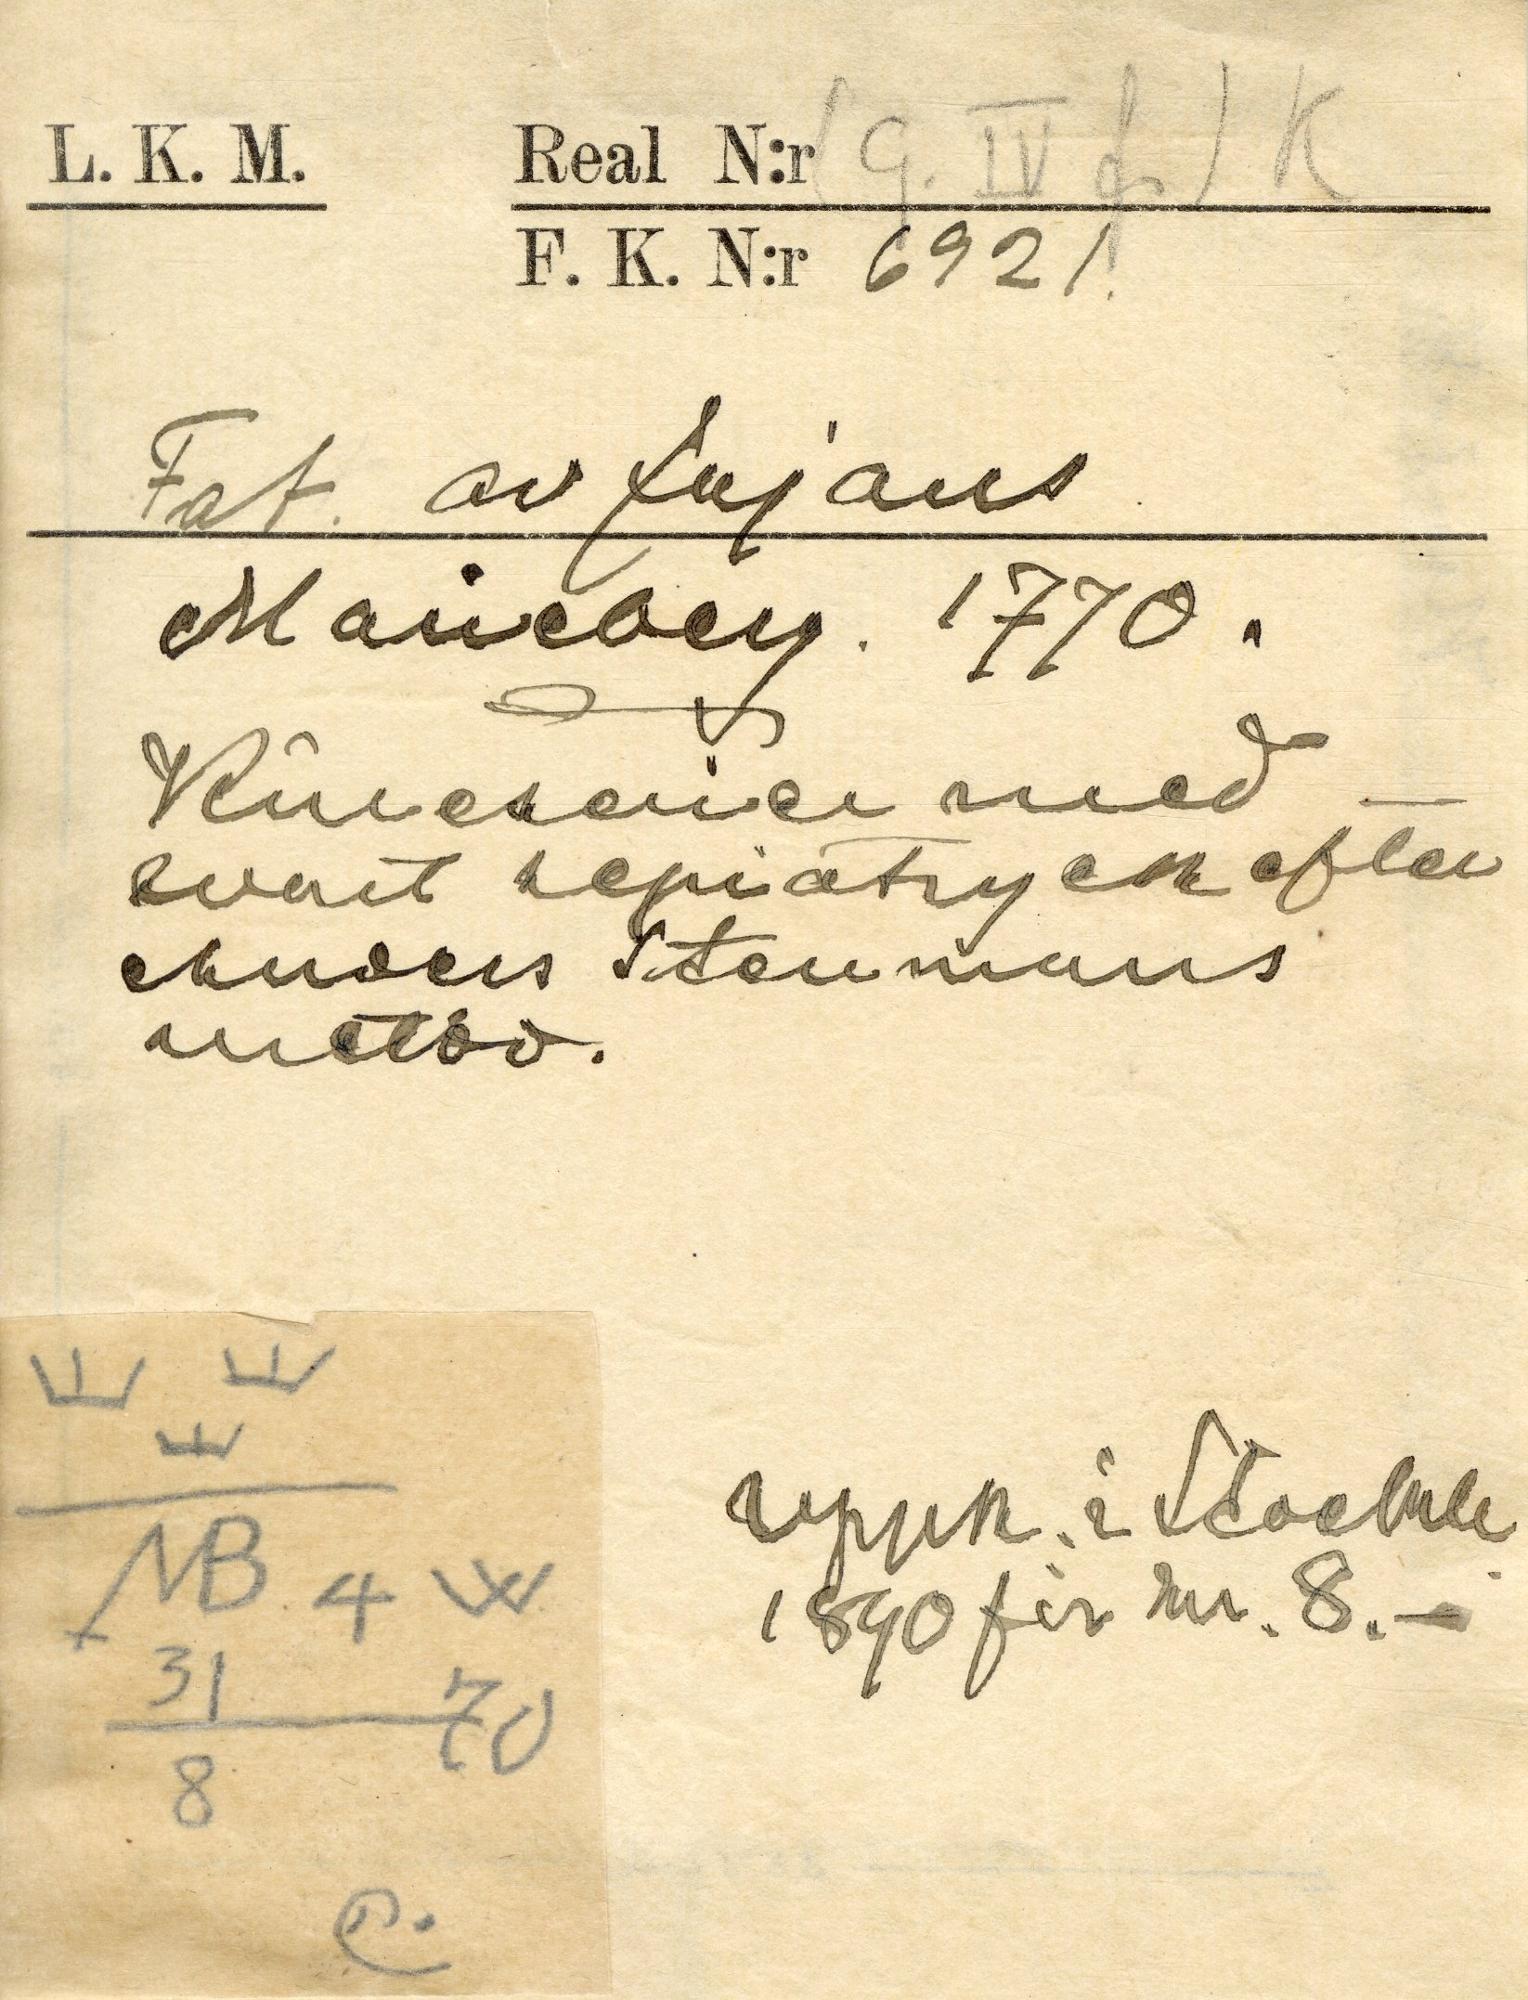 L. K. M.
Real N:r (G. IV f) K
F. K. N:r 6921.
Fat. av fajans
Marieberg. 1770.
Kineserier med
svart sepiatryck efter
Anders Stenmans
metod.
NB. 4 W
31
70
8
uppk. i Stockh
1890 för kr. 8.–